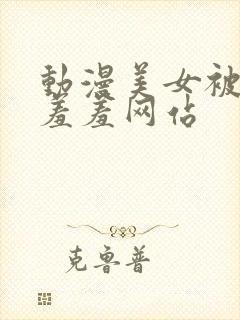 動漫美女被
羞羞网佔
克鲁普